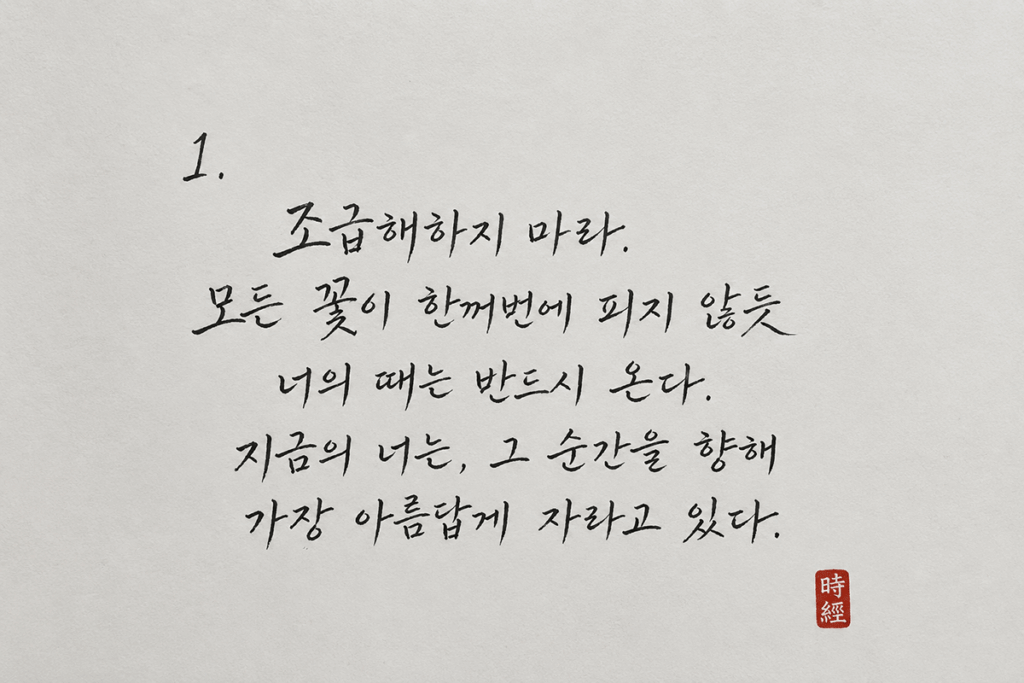 1.
조급해하지 마라.
모든 꽃이 한꺼번에 피지 않듯
너의 때는 반드시 온다.
지금의 너는, 그 순간을 향해
가장 아름답게 자라고 있다.
時
經